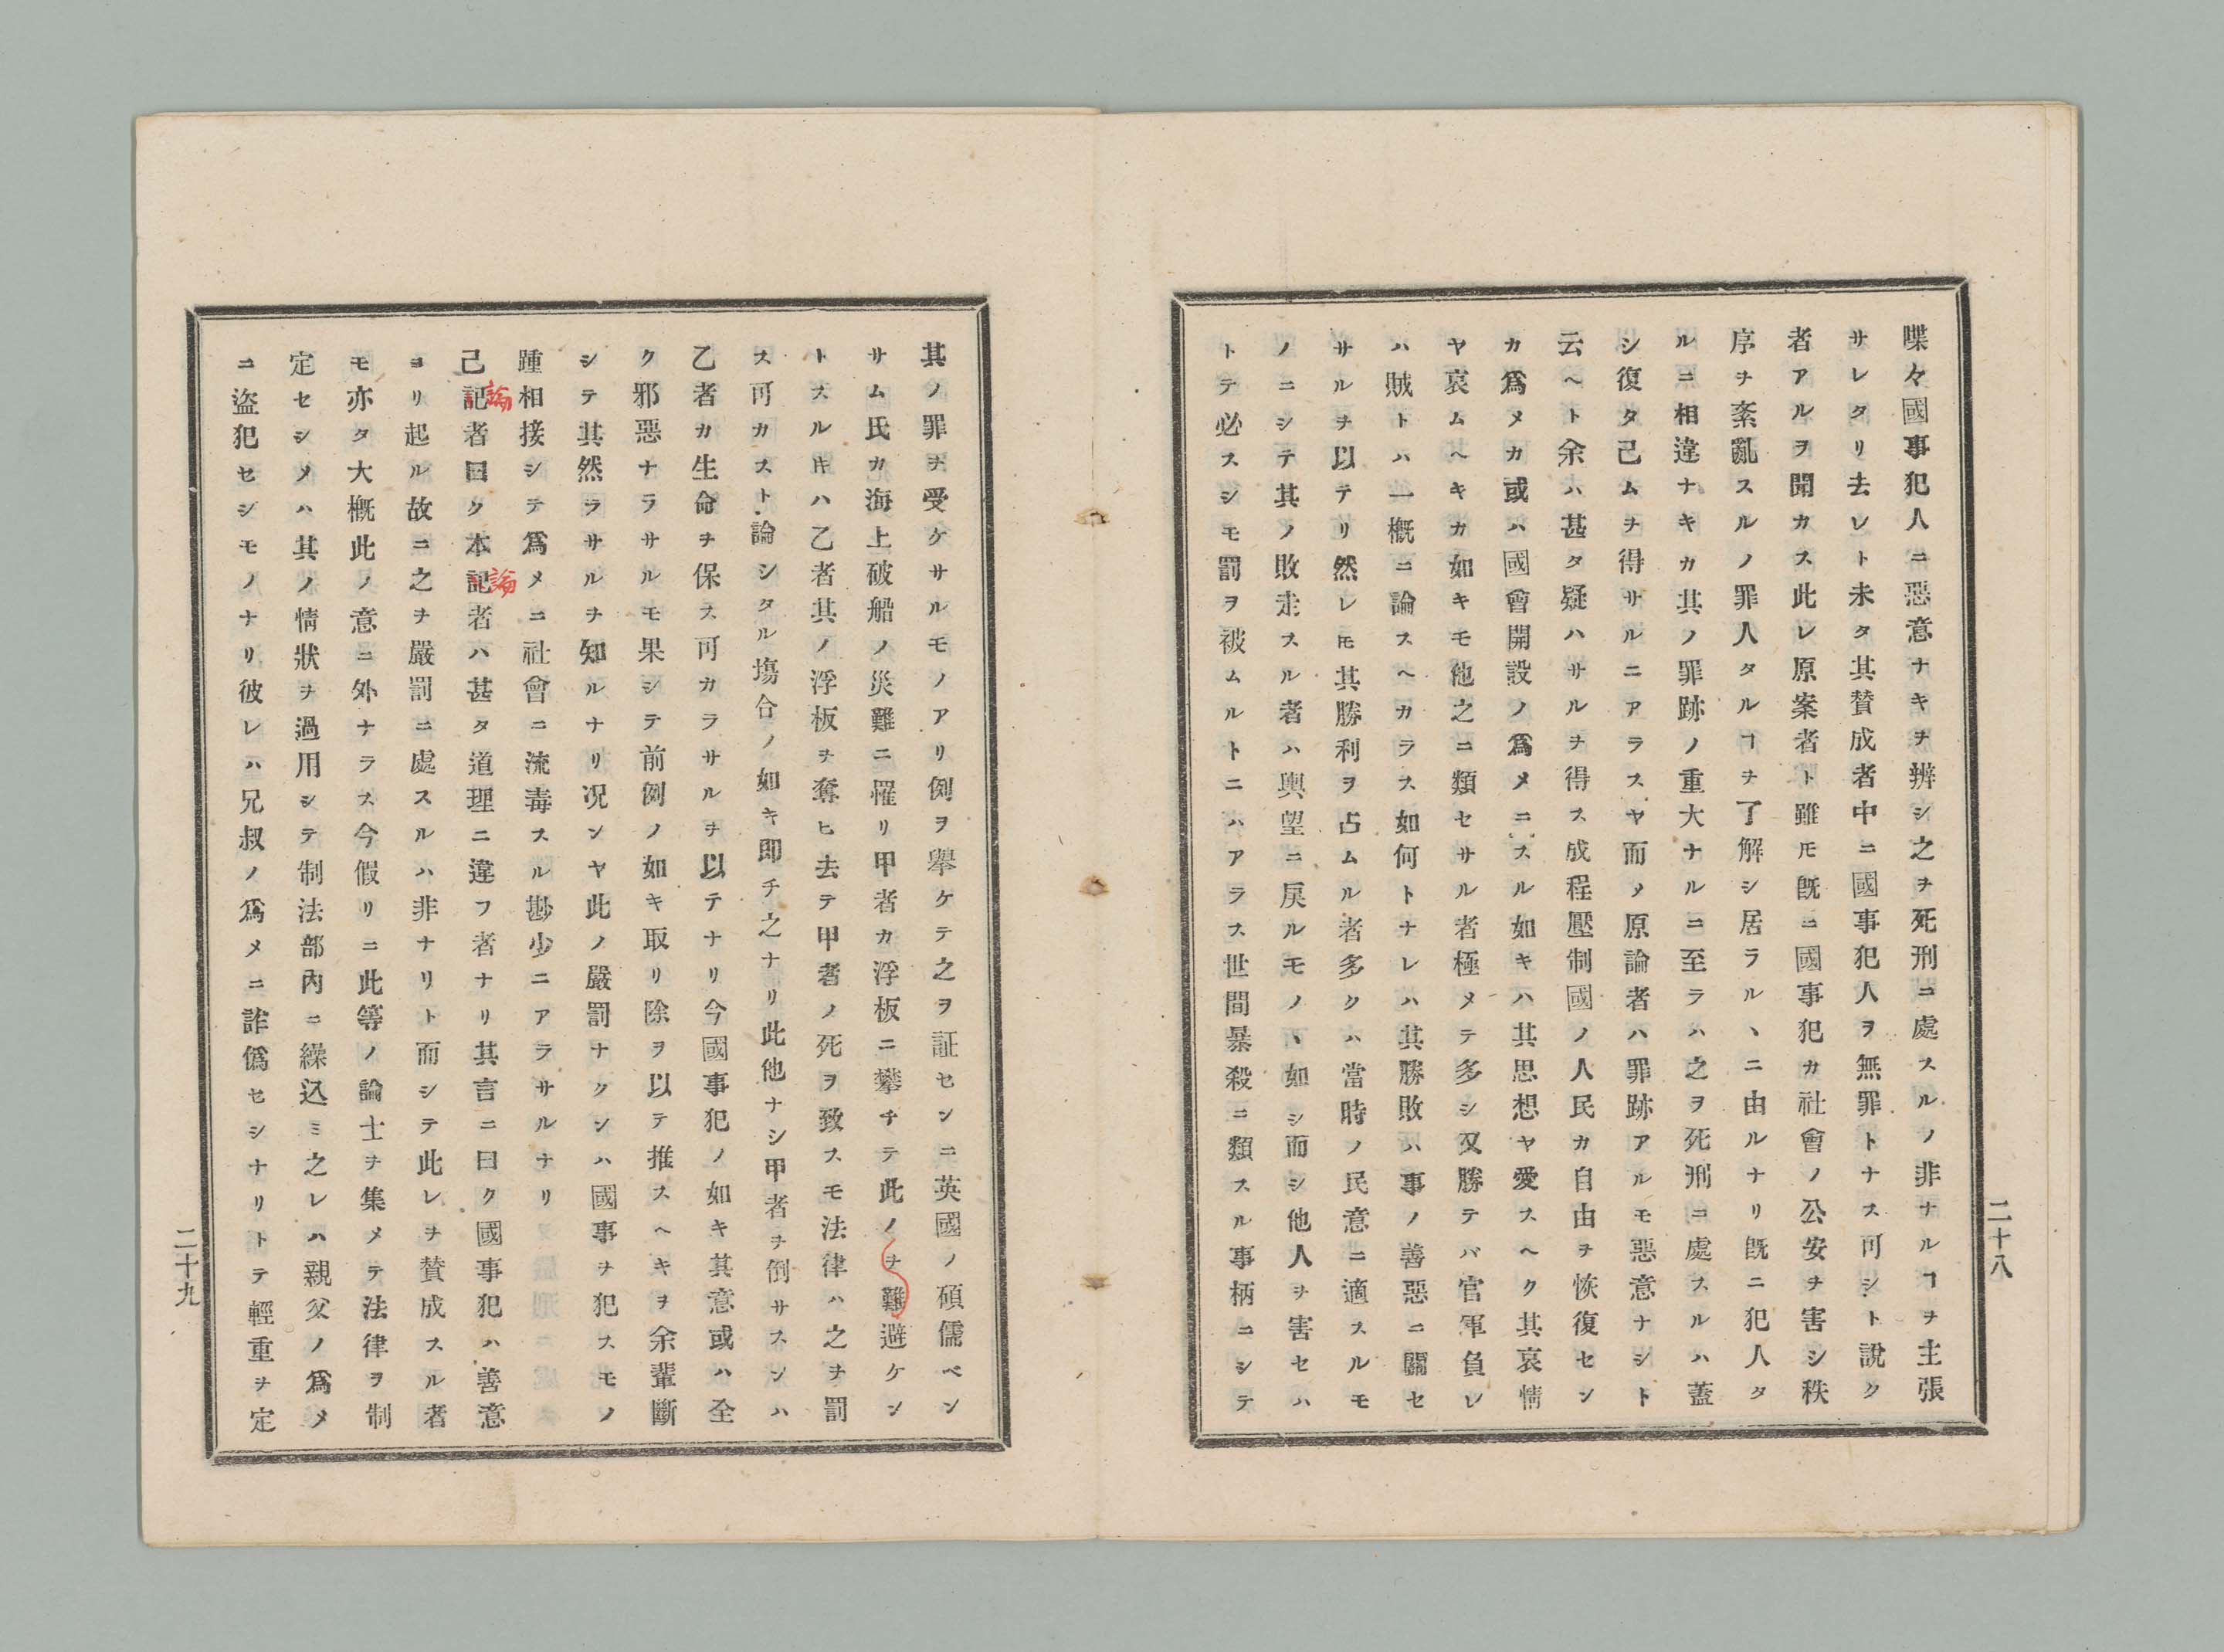 喋々國事犯人ニ惡意ナキヲ辨シ之ヲ死刑ニ處スルノ非ナルヿヲ主張
サレタリ去レト未タ其賛成者中ニ國事犯人ヲ無罪トナス可シト說ク
者アルヲ聞カス此レ原案者ト雖𪜈既ニ國事犯カ社會ノ公安ヲ害シ秩
序ヲ紊亂スルノ罪人タルヿヲ了解シ居ラルヽニ由ルナリ既ニ犯人タ
ルニ相違ナキカ其ノ罪跡ノ重大ナルニ至ラハ之ヲ死刑ニ處スルハ蓋
シ復タ己ムヲ得サルニアラスヤ而メ原論者ハ罪跡アルモ惡意ナシト
云ヘト余ハ甚タ疑ハサルヲ得ス成程壓制國ノ人民カ自由ヲ恢復セン
カ爲メカ或ハ國會開設ノ爲メニスル如キハ其思想ヤ愛スヘク其哀情
ヤ哀ムヘキカ如キモ他之ニ類セサル者極メテ多シ又勝テバ官軍負レ
ハ賊トハ一概ニ論スヘカラス如何トナレハ其勝敗ハ事ノ善惡ニ關セ
サルヲ以テリ然レ𪜈其勝利ヲ占ムル者多クハ當時ノ民意ニ適スルモ
ノニシテ其ノ敗走スル者ハ輿望ニ戾ルモノヽ如シ而シ他人ヲ害セハ
トテ必スシモ罰ヲ被ムルトニハアラス世間暴殺ニ類スル事柄ニシテ
二十八
其ノ罪ヲ受ケサルモノアリ例ヲ擧ケテ之ヲ証センニ英國ノ碩儒ベン
サム氏カ海上破船ノ災難ニ罹リ甲者カ浮板ニ攀チテ此ノヲ難避ケン
トスル𪜈ハ乙者其ノ浮板ヲ奪ヒ去テ甲者ノ死ヲ致スモ法律ハ之ヲ罰
ス可カスト論シタル塲合ノ如キ即チ之ナリ此他ナシ甲者ヲ倒サスンハ
乙者カ生命ヲ保ス可カラサルヲ以テナリ今國事犯ノ如キ其意或ハ全
ク邪惡ナラサルモ果シテ前例ノ如キ取リ除ヲ以テ推スヘキヲ余輩斷
シテ其然ラサルヲ知ルナリ況ンヤ此ノ嚴罰ナクンハ國事ヲ犯スモノ
踵相接シテ爲メニ社會ニ流毒スル尠少ニアラサルナリ
己記者曰ク本記者ハ甚タ道理ニ違フ者ナリ其言ニ曰ク國事犯ハ善意
論
論
ヨリ起ル故ニ之ヲ嚴罰ニ處スルハ非ナリト而シテ此レヲ賛成スル者
モ亦タ大概此ノ意ニ外ナラス今假リニ此等ノ論士ヲ集メテ法律ヲ制
定セシメハ其ノ情狀ヲ過用シテ制法部內ニ繰込ミ之レハ親父ノ爲メ
ニ盜犯セシモノナリ彼レハ兄叔ノ爲メニ詐僞セシナリトテ輕重ヲ定
二十九